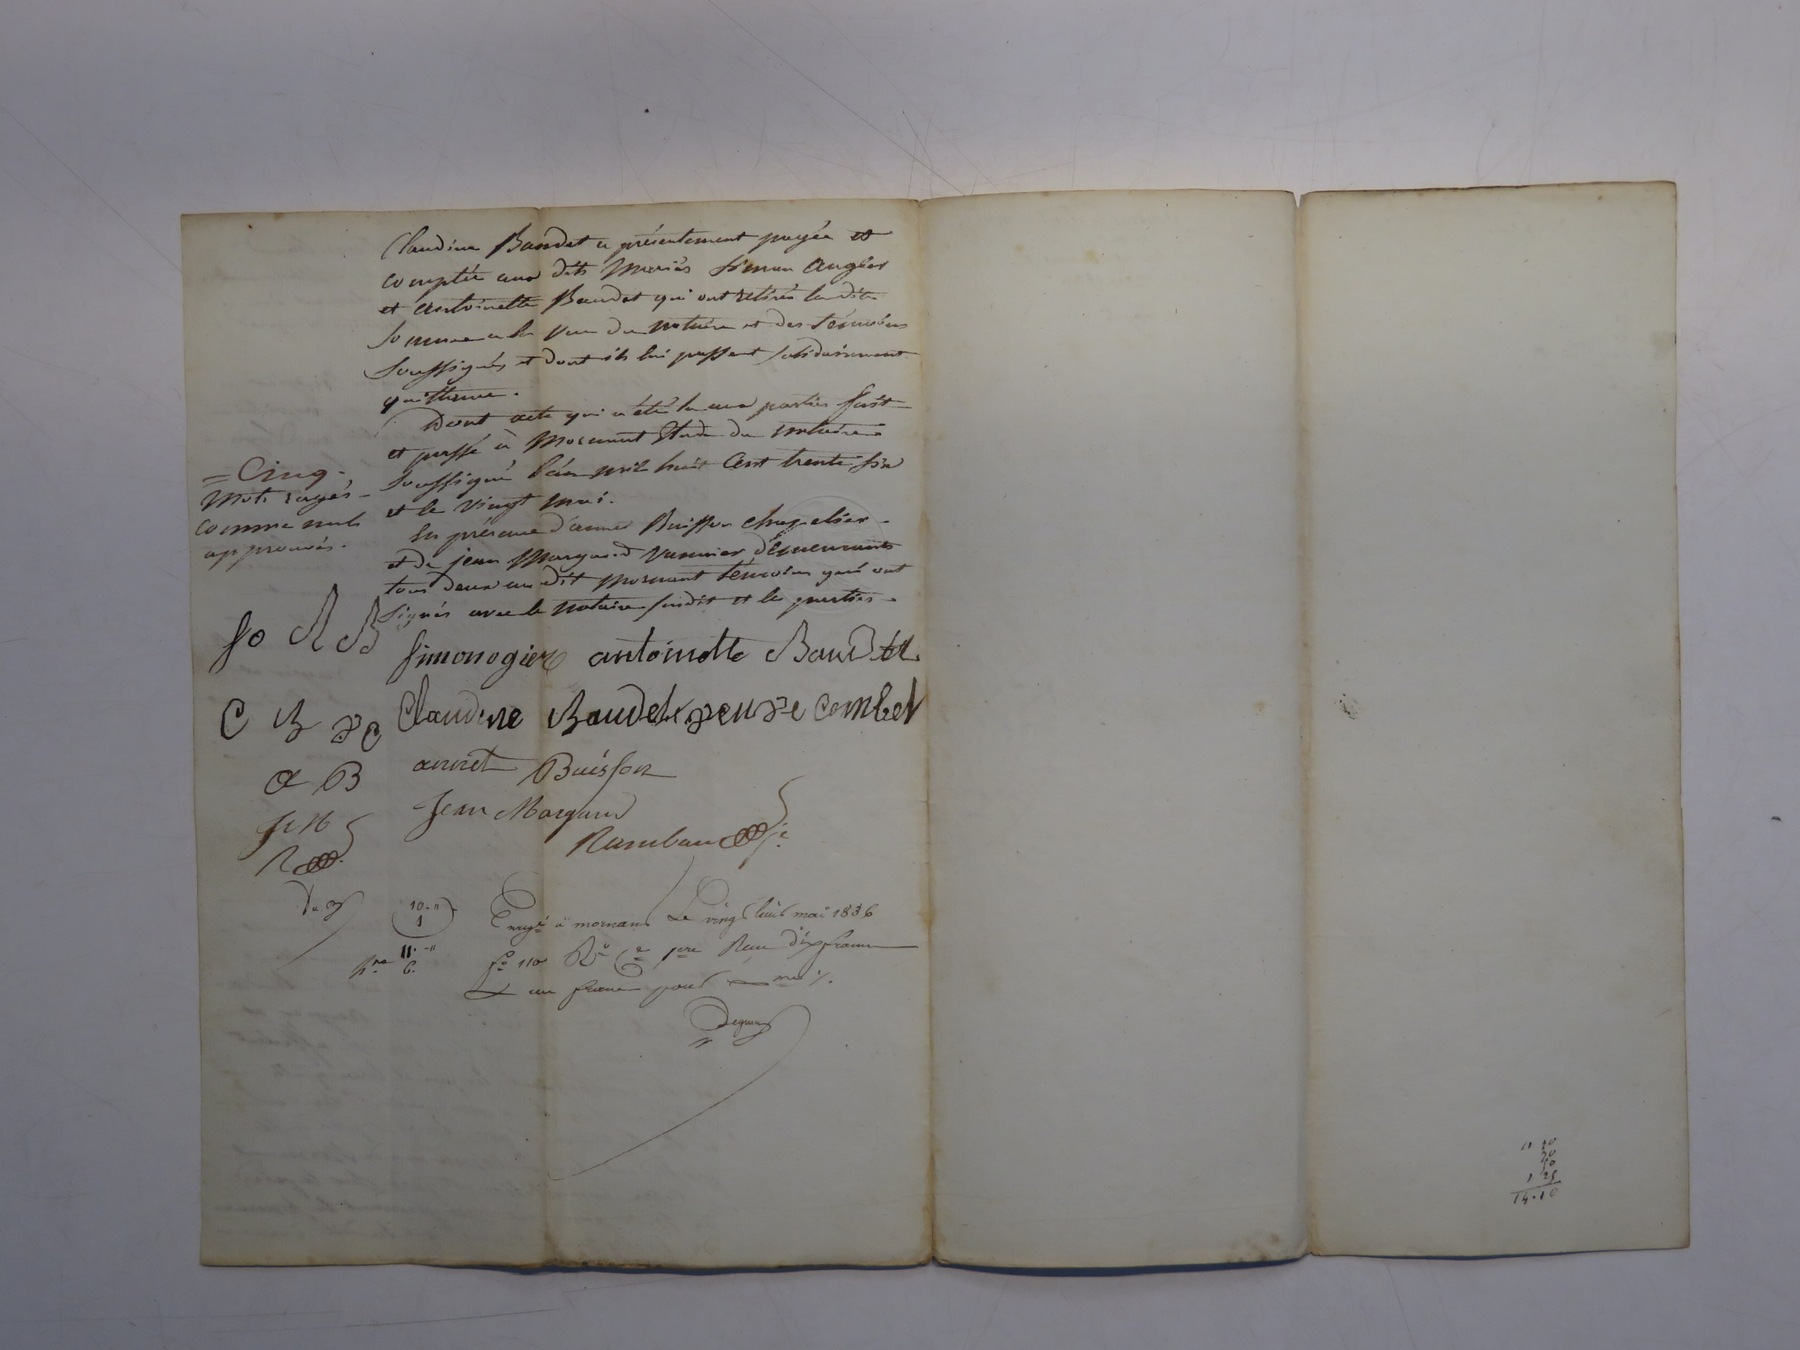 Claudine Baudet a présentement payée et
comptée aux dits Mariés Simon Augier
et antoinette Baudet qui ont retirés la dite
somme a la vue du notaire et des témoins
soussignés et dont ils lui passent solidairement
quittance.
Dont acte qui a été lu aux parties fait
et passé à Mornant Etude du notaire
soussigné l'an mil huit Cent trente six
et le vingt mai.
En présence d'annet Buisson chapelier
et de jean Margand vannier demeurants
tous deux au dit Mornant témoins qui ont
signés avec le notaire susdit et les parties.
= Cinq
Mots rayés
comme nuls
approuvés.
so A B
simon ogier antoinette Baudet
C B C
Claudine Baudet combet
a B
annet Buisson
J M
Jean Margand
R
Rambaud
10 "
1
11 - "
6
Enregé à mornant Le vingt huit mai 1836
fo 110 Ro Ce 1re Reçu dix francs
& un franc pour
Deguer
11 20
50
1 25
14.10